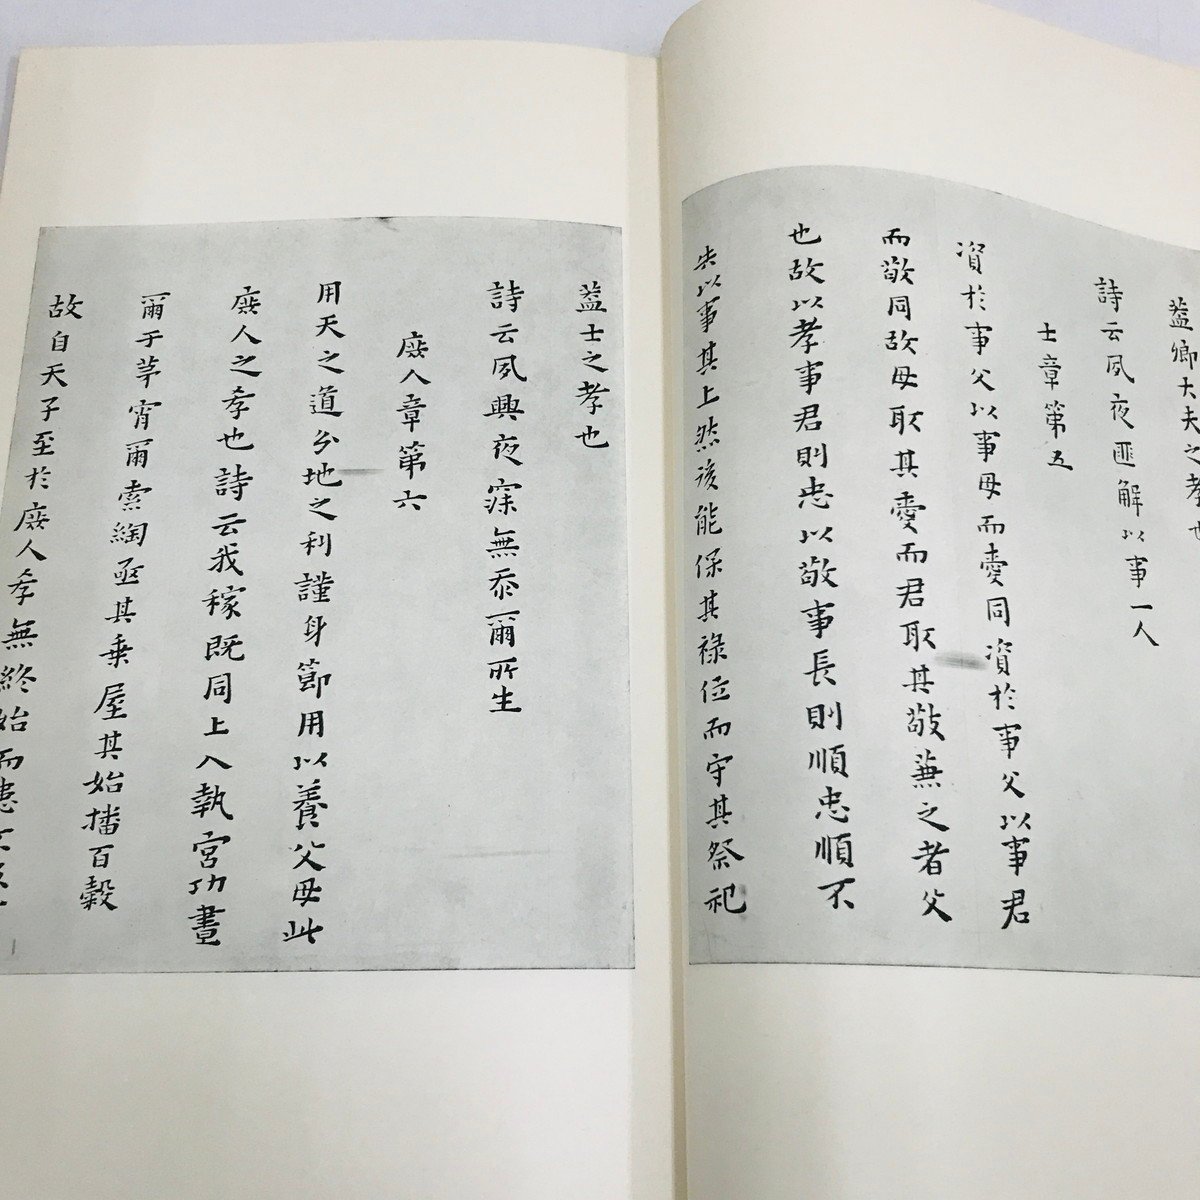 蓋卿大夫之孝也
詩云夙夜匪解以事一人
士章第五
資於事父以事母而愛同資於事父以事君
而敬同故母取其愛而君取其敬兼之者父
也故以孝事君則忠以敬事長則順忠順不
失以事其上然後能保其祿位而守其祭祀
蓋士之孝也
詩云夙興夜寐無忝爾所生
庶人章第六
用天之道分地之利謹身節用以養父母此
庶人之孝也詩云我稼既同上入執宮功晝
爾于茅宵爾索綯亟其乗屋其始播百穀
故自天子至於庶人孝無終始而患不